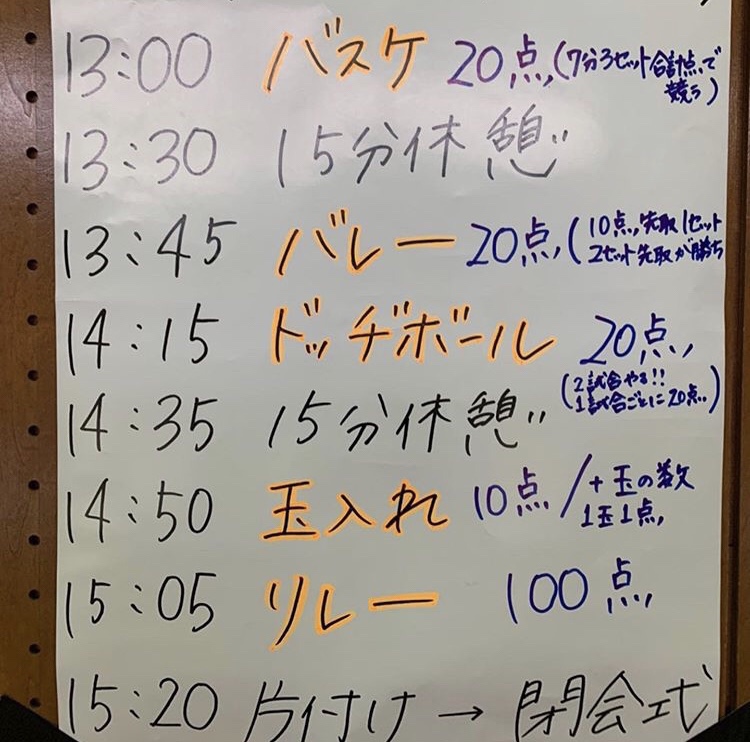 13:00 バスケ 20点(7分3セット合計点で
競う)
13:30 15分休憩
13:45 バレー 20点(10点先取1セット
2セット先取が勝ち
14:15 ドッヂボール 20点
(2試合やる!!
1試合ごとに20点)
14:35 15分休憩
14:50 玉入れ 10点/+玉の数
1玉1点
15:05 リレー 100点
15:20 片付け→閉会式